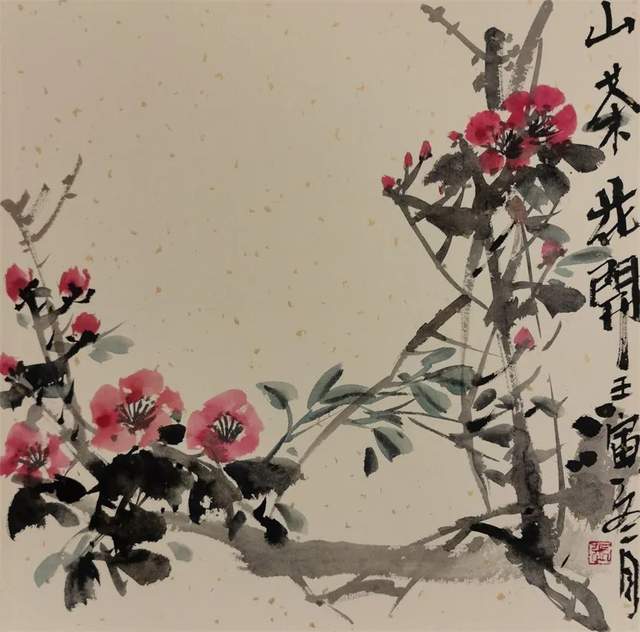 山茶花開壬寅月